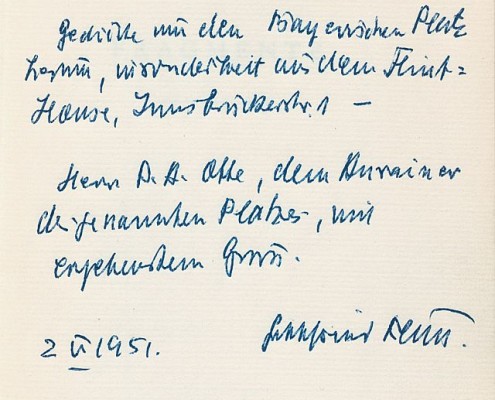 Gedichte um den Bayerischen Platz
herum, insonderheit aus dem
House, Innsbruckerstr. 1 —
Herrn A. H. Otte, dem Anrainer
des genannten Platzes, mit
ergebenstem Gruss.
2 VI 1951. Gottfried Benn.